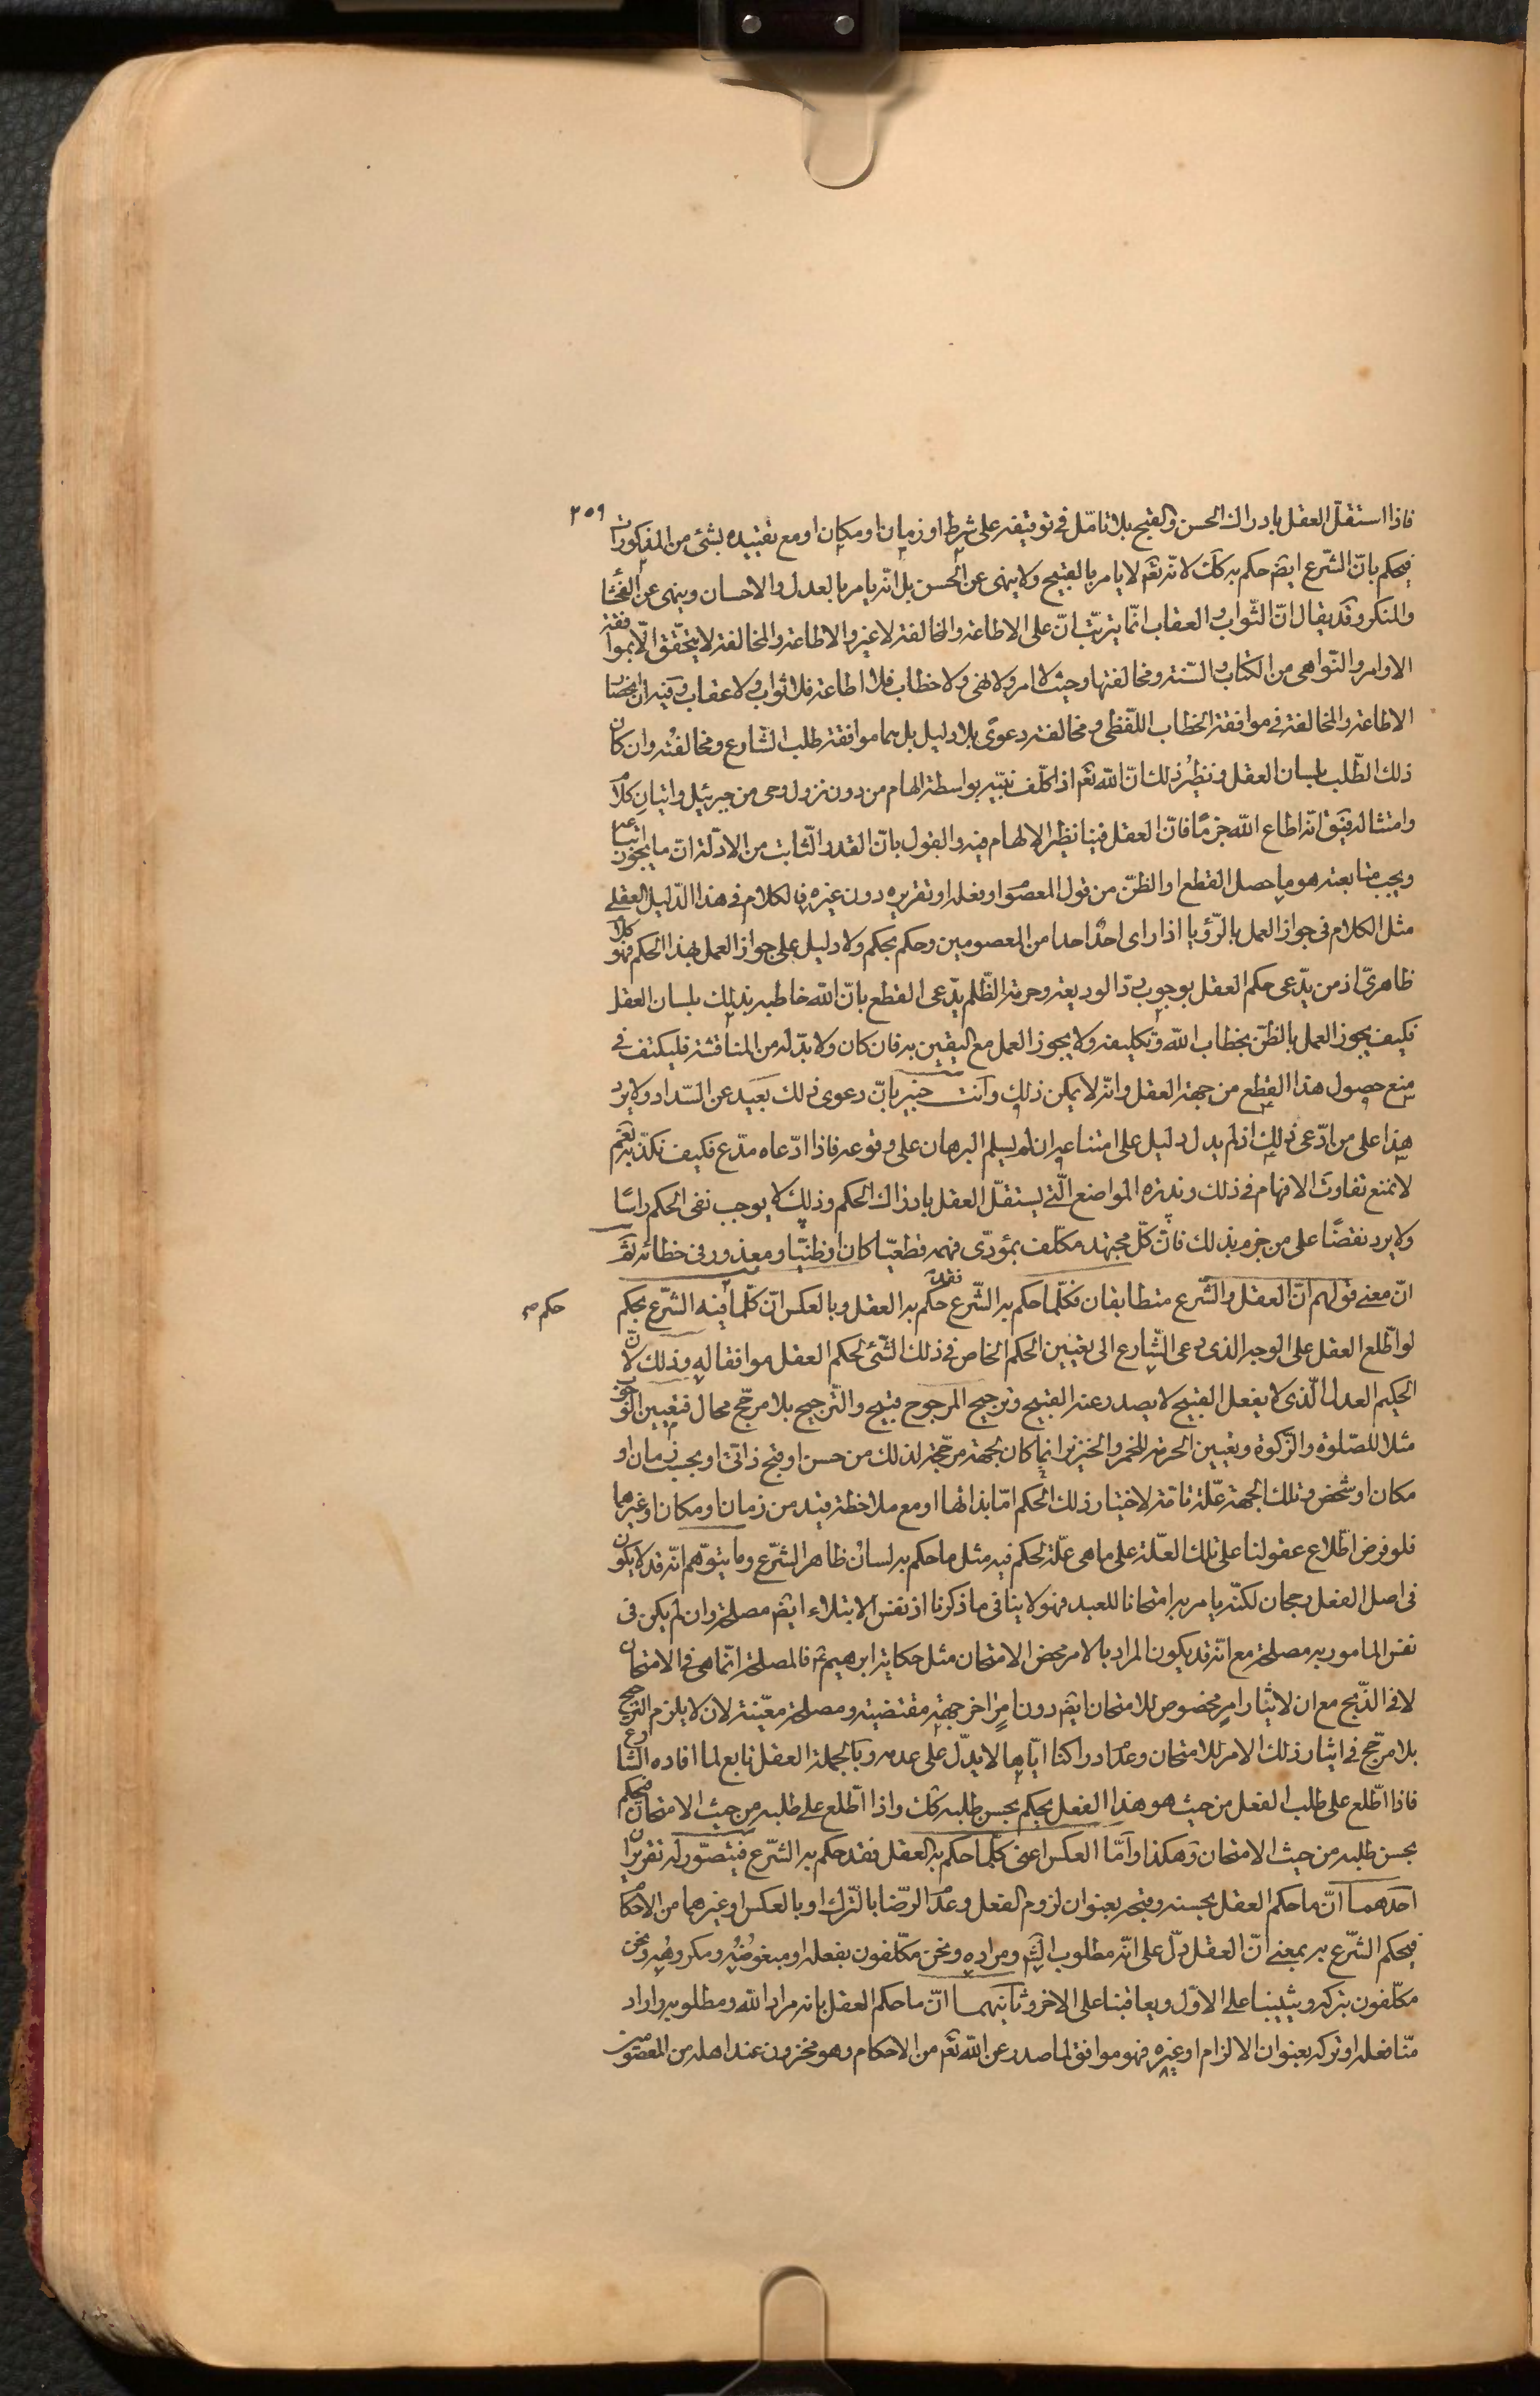 ٢٥٩
فاذا استقلّ العقل بادراك الحسن والقبح بلا تامّل فى توقيفه على شرط او زمان او مكان او مع تقييده بشئ من المذكورات
فيحكم بانّ الشّرع ايضم حكم به كك لانّه تعم لا يامر بالقبيح ولا ينهى عن الحسن بل انّه يامر بالعدل والاحسان وينهى عن الفحشا
والمنكر وقد يقال انّ الثّواب والعقاب انّما يترتّبان على الاطاعة والمخالفة لا غير والاطاعة والمخالفة لا يتحّقق الّا بموافقة
الاوامر والنّواهى من الكتاب والسّنة ومخالفتها وحيث لا امر ولا نهى ولا خطاب فلا اطاعة فلا ثواب ولا عقاب وفيه ان انحصار
الاطاعة والمخالفة فى موافقة الخطاب اللّفظى ومخالفته دعوى بلا دليل بل هما موافقة طلب الشّارع ومخالفته وان كان
ذلك الطّلب بلسان العقل ونظير ذلك انّ اللّه تعم اذا كلّف نبيّه بواسطة الهام من دون نزول وحى من جبرئيل واتيان كلام
وامتثاله فيق انّه اطاع اللّه جزمًا فانّ العقل فينا نظير الالهام فيه والقول بانّ القدر الثّابت من الادلّة انّ ما يجوز اتباعه
ويجب متابعته هو ما حصل القطع او الظّن من قول المعصوم او فعله او تقريره دون غيره فالكلام فى هذا الدّليل العقلى
مثل الكلام فى جواز العمل بالرّؤيا اذا راى احد احدا من المعصومين وحكم بحكم ولا دليل على جواز العمل بهذا الحكم فهو كلام
ظاهرىّ اذ من يدّعى حكم العقل بوجوب ردّ الوديعة وحرمة الظّلم يدّعى القطع بانّ اللّه خاطبه بذلك بلسان العقل
فكيف يجوز العمل بالظنّ بخطاب اللّه وتكليفه ولا يجوز العمل مع اليقين به فان كان ولا بدّ له من المناقشة فليكتف فى
منع حصول هذا القطع من جهة العقل وانّه لا يمكن ذلك وانت خبير بانّ دعوى ذلك بعيد عن السّداد ولا يرد
هذا على من ادّعى ذلك اذ لم يدل دليل على امتناعه ان لم يسلم البرهان على وقوعه فاذا ادّعاه مدّع فكيف نكذّبه نعم
لا نمنع تفاوت الافهام فى ذلك وندرة المواضع الّتى يستقلّ العقل بادراك الحكم وذلك لا يوجب نفى الحكم راسًا
ولا يرد نقضًا على من جزم بذلك فانّ كلّ مجتهد مكلّف بمؤدّى فهمه قطعيّا كان او ظنيّا ومعذور فى خطائه ثمّ
انّ معنى قولهم انّ العقل والشّرع متطابقان فكلّما حكم به الشّرع فقد حكم به العقل وبالعكس انّ كلّما فيه الشّرع بحكم
حكم ص
لو اطّلع العقل على الوجه الذى دعى الشّارع الى تعيين الحكم الخاص فى ذلك الشّئ لحكم العقل موافقا له وذلك لانّ
الحكيم العدل الّذى لا يفعل القبيح لا يصدر عنه القبيح وترجيح المرجوح قبيح والتّرجيح بلا مرجّح محال فتعيين الوجوب
مثلا للصّلوة والزّكوة وتعيين الحرمة للخمر والخنزير انما كان لجهة مرجّحة لذلك من حسن او قبح ذاتى او بحسب زمان او
مكان او شخص وتلك الجهة علّة تامّة لاختيار ذلك الحكم امّا بذاتها او مع ملاحظة قيد من زمان او مكان او غيرهما
فلو فرض اطّلاع عقولنا على تلك العلّة على ما هى علّة لحكم فيه مثل ما حكم به لسان ظاهر الشّرع وما يتوّهم انّه قد لا يكون
فى اصل الفعل رجحان لكنّه يامر به امتحانا للعبد فهو لا ينافى ما ذكرنا اذ نفس الابتلاء ايضم مصلحة وان لم يكن فى
نفس المامور به مصلحة مع انّه قد يكون المراد بالامر محض الامتحان مثل حكاية ابرهيم ع فالمصلحة انّما هى فى الامتحان
لا فى الذّبح مع ان لايثار امر مخصوص للامتحان ايضم دون امر اخر جهة مقتضية ومصلحة معيّنة لان لا يلزم الترجيح
بلا مرجّح فى ايثار ذلك الامر للامتحان وعدم ادراكنا ايّاها لا يدّل على عدمه وبالجملة العقل تابع لما افاده الشارع
فاذا اطّلع على طلب الفعل من حيث هو هذا الفعل يحكم بحسن طلبه كك واذا اطّلع على طلبه من حيث الامتحان فيحكم
بحسن طلبه من حيث الامتحان وهكذا وامّا العكس اعنى كلّما حكم به العقل فقد حكم به الشّرع فيتصوّر له تقريران
احدهما انّ ما حكم العقل بحسنه وقبحه بعنوان لزوم الفعل وعدم الرّضا بالتّرك او بالعكس او غيرهما من الاحكام
فيحكم الشّرع به بمعنى انّ العقل دلّ على انّه مطلوب الشّم ومراده ونحن مكلّفون بفعله او مبغوضه ومكروهه ونحن
مكلّفون بتركه ويثيبنا على الاوّل ويعاقبنا على الاخر وثانيهما انّ ما حكم العقل بانه مراد اللّه ومطلوبه واراد
منّا فعله او تركه بعنوان الالزام او غيره فهو موافق لما صدر عن اللّه تعم من الاحكام وهو مخزون عند اهله من المعصومين